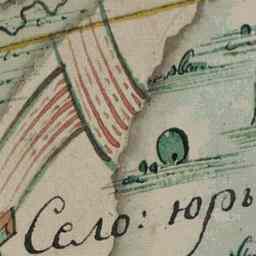 Село: юрь